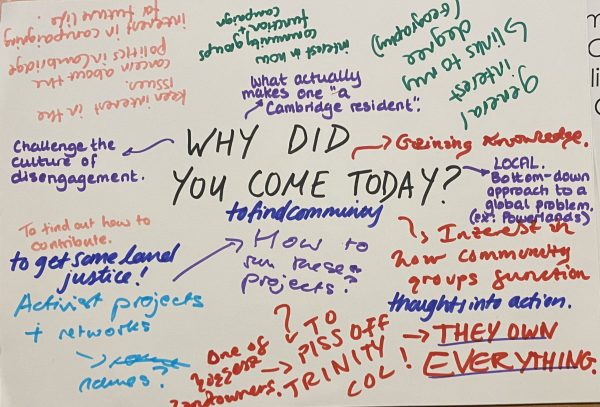 Keen interest in the
issues.
concern about the
politics in Cambridge
interest in campaigning
for future life.
interest in how
community groups
function +
campaign
general
interest
↳ links to my
degree
(geography)
What actually
makes one "a
Cambridge resident".
Challenge the
culture of
disengagement.
WHY DID
YOU COME TODAY?
→ Gaining Knowledge.
LOCAL.
Bottom-down
approach to a
global problem.
(ex: Powerlands)
To find out how to
contribute.
to get some land
justice!
to find community
How to
run these
projects?
↳ Interest in
how community
groups function
thoughts into action.
Activist projects
+ networks
→
names?
One of
biggest
landowners.
→ TO
PISS OFF
TRINITY
COL!
→ THEY OWN
EVERYTHING.